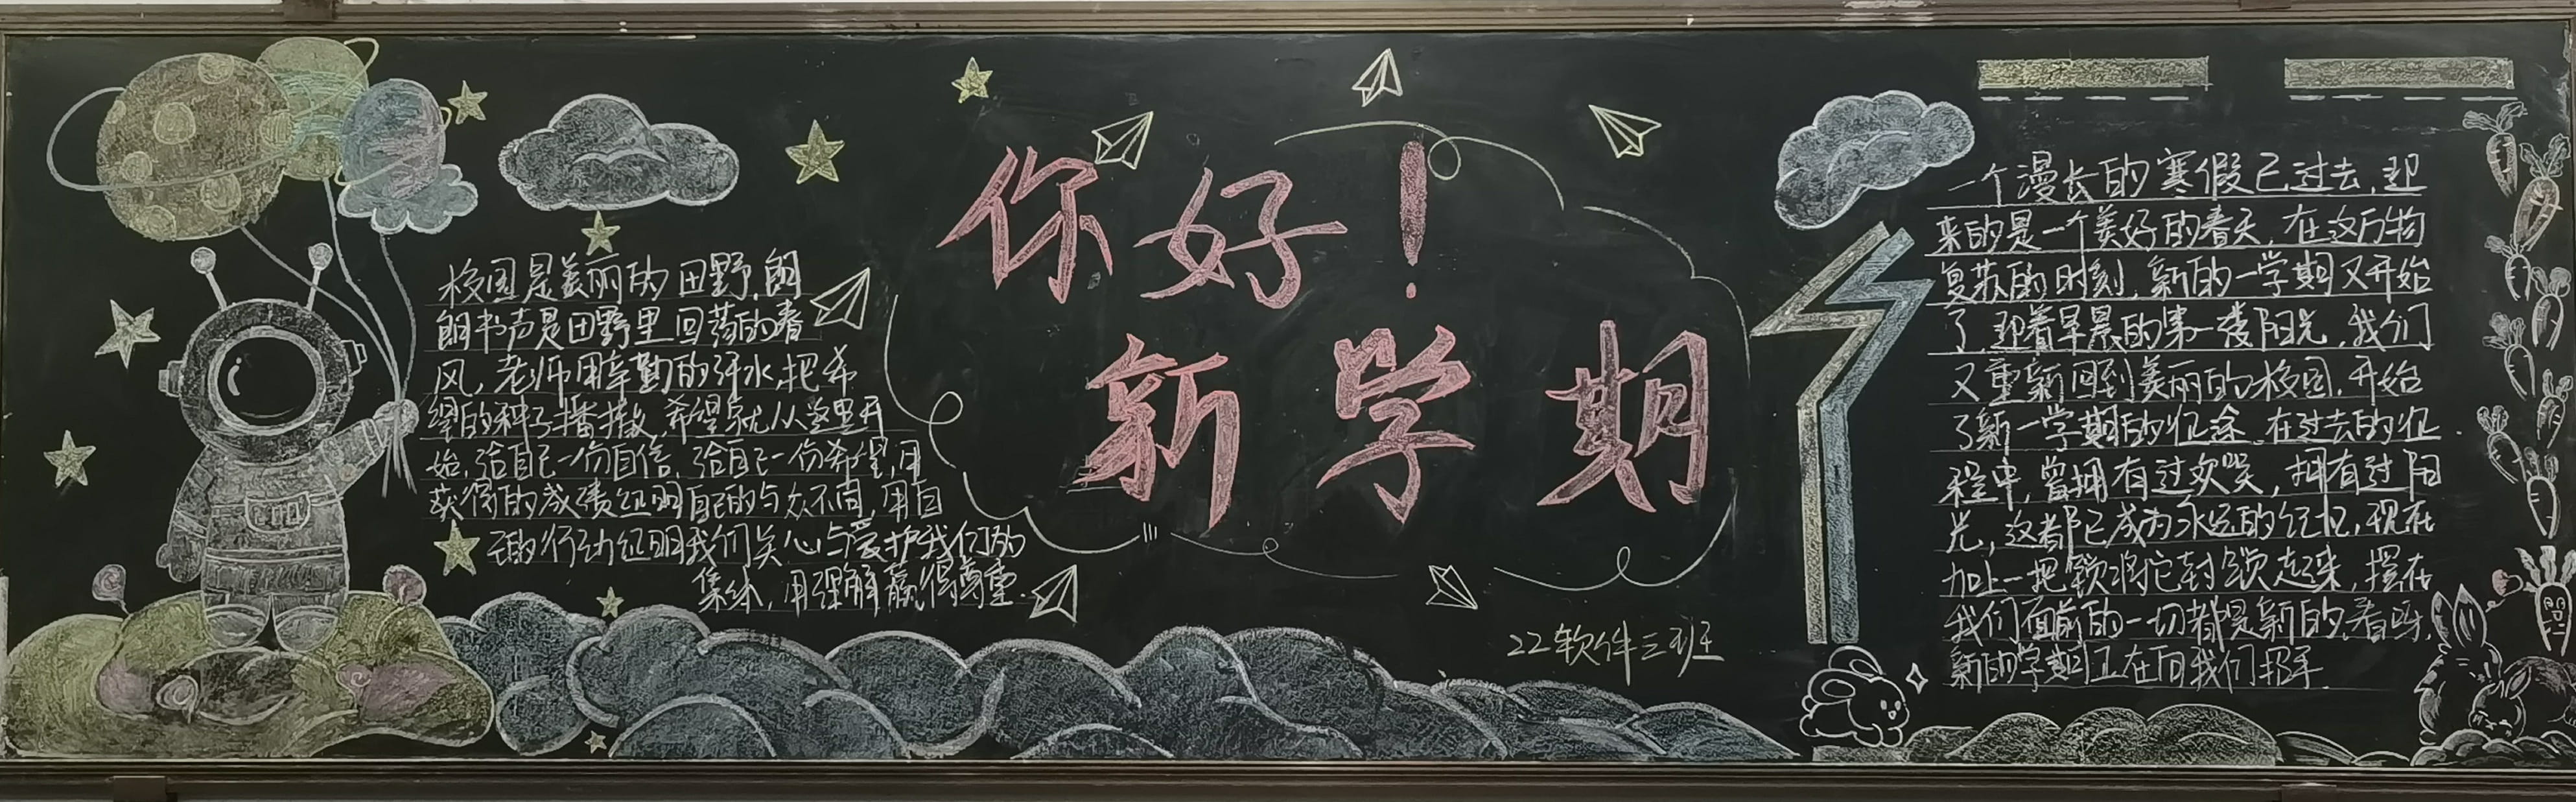 校园是美丽的田野,朗
朗书声是田野里回荡的春
风,老师用辛勤的汗水,把希
望的种子播撒,希望就从这里开
始,给自己一份自信,给自己一份希望,用
获得的成绩证明自己的与众不同,用自
己的行动证明我们关心与爱护我们的
集体,用理解赢得尊重.
你好!
新学期
22软件三班
一个漫长的寒假已过去,迎
来的是一个美好的春天,在这万物
复苏的时刻,新的一学期又开始
了,迎着早晨的第一缕阳光,我们
又重新回到美丽的校园,开始
了新一学期的征途,在过去的征
程中,曾拥有过欢笑,拥有过阳
光,这都已成为永远的记忆,现在
加上一把锁将它封锁起来,摆在
我们面前的一切都是新的,看呀,
新的学期正在向我们招手.